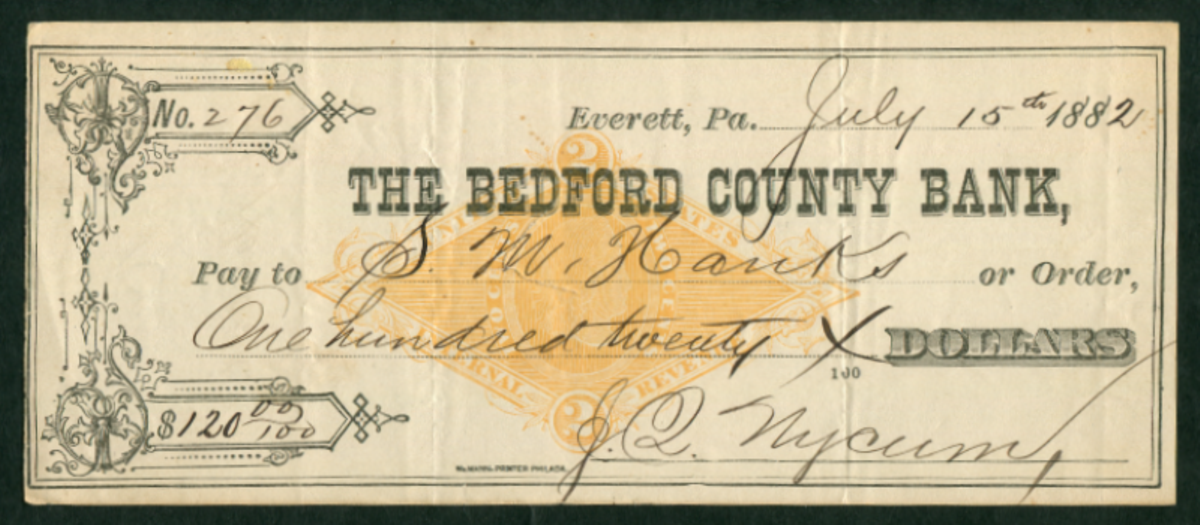 No. 276
Everett, Pa. July 15th 1882
THE BEDFORD COUNTY BANK,
Pay to S. M. Hanks or Order,
One hundred twenty X DOLLARS
100
$120 00/100
J. Q. Nycum
McMANN, PRINTER PHILADA.
2
UNITED STATES
INTERNAL REVENUE
2